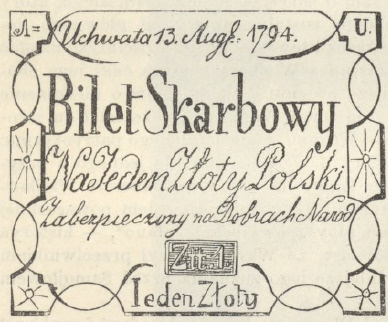 A= Uchwała 13. Augs. 1794. U.
Bilet Skarbowy
Na Jeden Złoty Polski
Zabezpieczony na Dobrach Narod
Zł: 1
Ieden Złoty